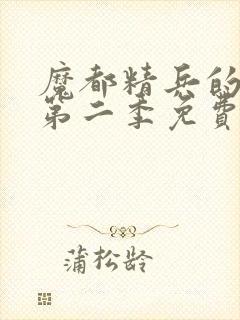 魔都精兵的
第二季免費
蒲松龄